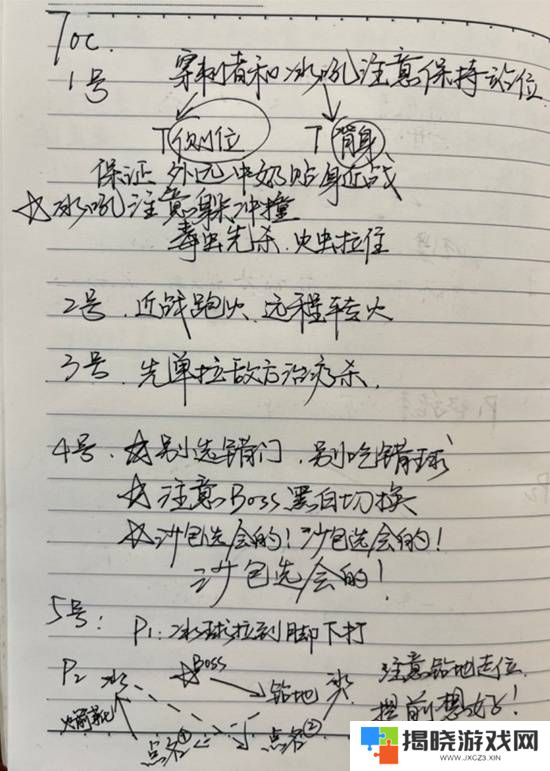 Toc.
1号 穿刺者和冰吼注意保持站位
T侧位 T背身
保证 外 中奶贴身近战
☆冰吼注意躲冲撞
毒虫先杀.火虫拉住
2号.近战跑火、远程转火
3号.先单拉敌方治疗杀.
4号.☆别选错门.别吃错球
☆注意Boss黑白切换
☆沙包选会的!沙包选会的!
沙包选会的!
5号: P1:冰球拉到脚下打
P2 冰 ☆Boss 钻地 冰 注意钻地走位
火箭靴 点名① 点名② 提前想好!
揭晓游戏网
WWW.JXCZ3.XIN